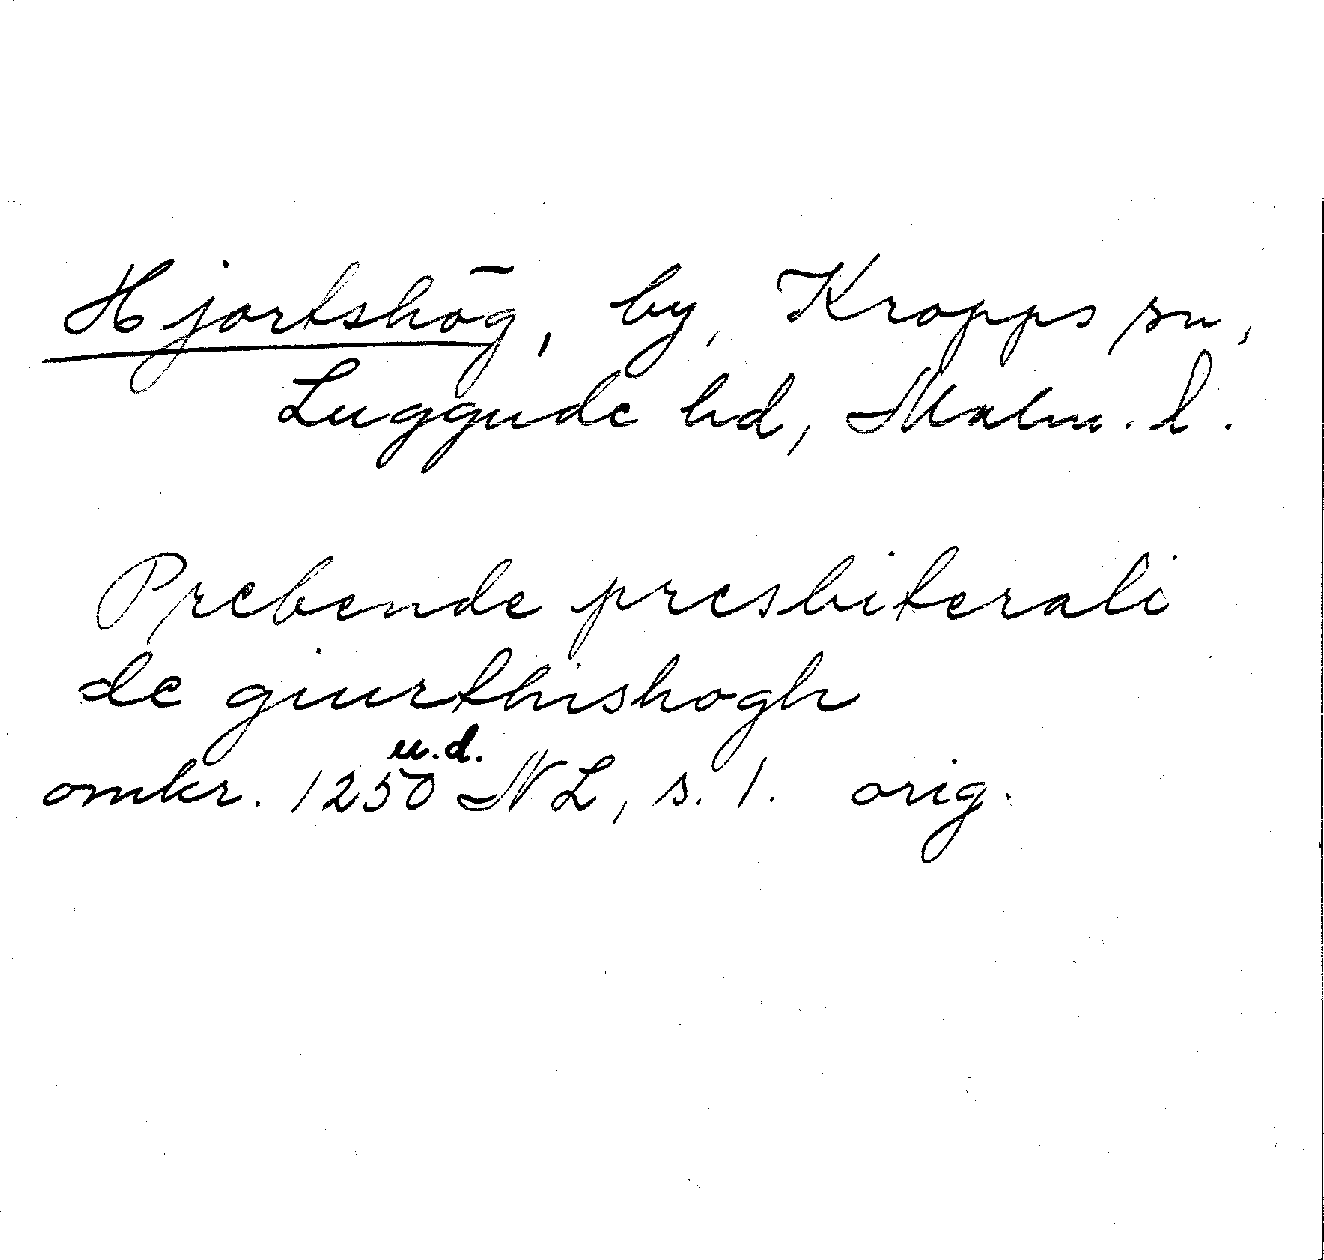 Hjortshög, by, Kropps sn,
Luggude hd, Malm. l.
Prebende presbiterali
de giurthishogh
u.d.
omkr. 1250 NL, s. 1. orig.